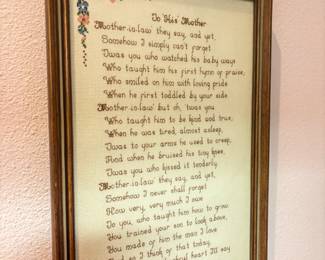 To His Mother
Mother-in-law they say, and yet,
Somehow I simply can't forget
Twas you who watched his baby ways
Who taught him his first hymn of praise,
Who smiled on him with loving pride
When he first toddled by your side
Mother-in-law but oh, twas you
Who taught him to be kind and true,
When he was tired, almost asleep,
Twas to your arms he used to creep,
And when he bruised his tiny knee,
Twas you who kissed it tenderly
Mother-in-law they say, and yet,
Somehow I never shall forget
How very, very much I owe
To you, who taught him how to grow
You trained your son to look above,
You made of him the man I love
And so I think of that today,
heart I'll say